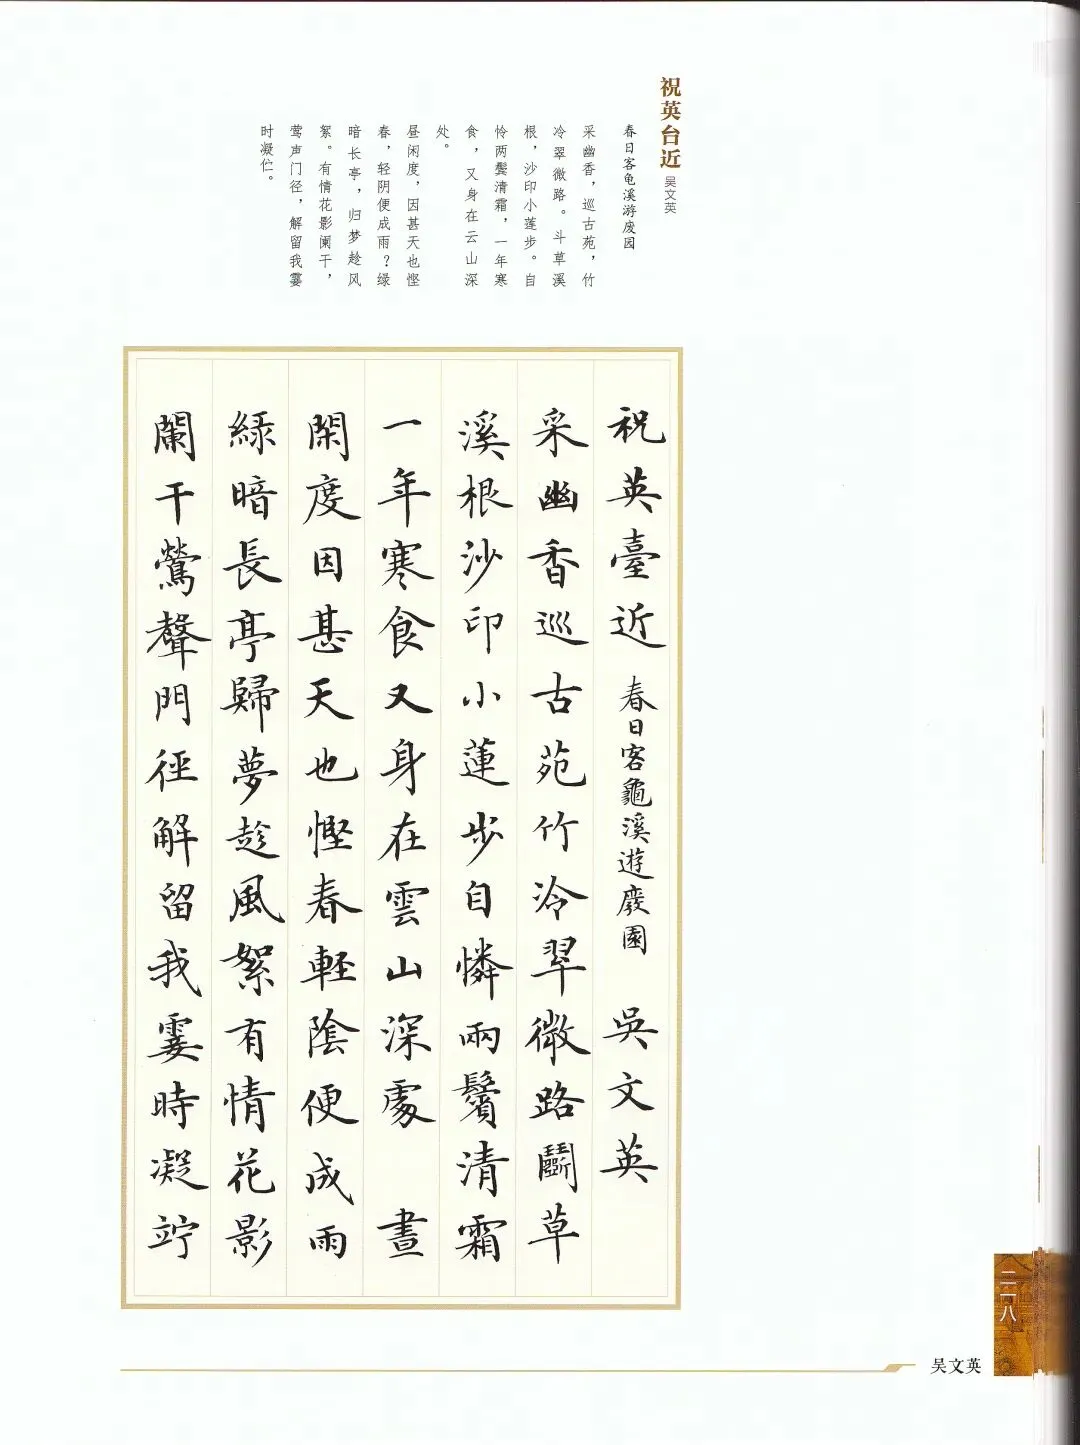 祝英台近 吴文英
春日客龟溪游废园
采幽香，巡古苑，竹
冷翠微路。斗草溪
根，沙印小莲步。自
怜两鬓清霜，一年寒
食，又身在云山深
处。
昼闲度，因甚天也悭
春，轻阴便成雨？绿
暗长亭，归梦趁风
絮。有情花影阑干，
莺声门径，解留我霎
时凝伫。
祝英臺近 春日客龜溪遊廢園 吳文英
采幽香巡古苑竹冷翠微路鬭草
溪根沙印小蓮步自憐兩鬢清霜
一年寒食又身在雲山深處 晝
閑度因甚天也慳春輕陰便成雨
綠暗長亭歸夢趁風絮有情花影
闌干鶯聲門徑解留我霎時凝竚
二一八
吴文英